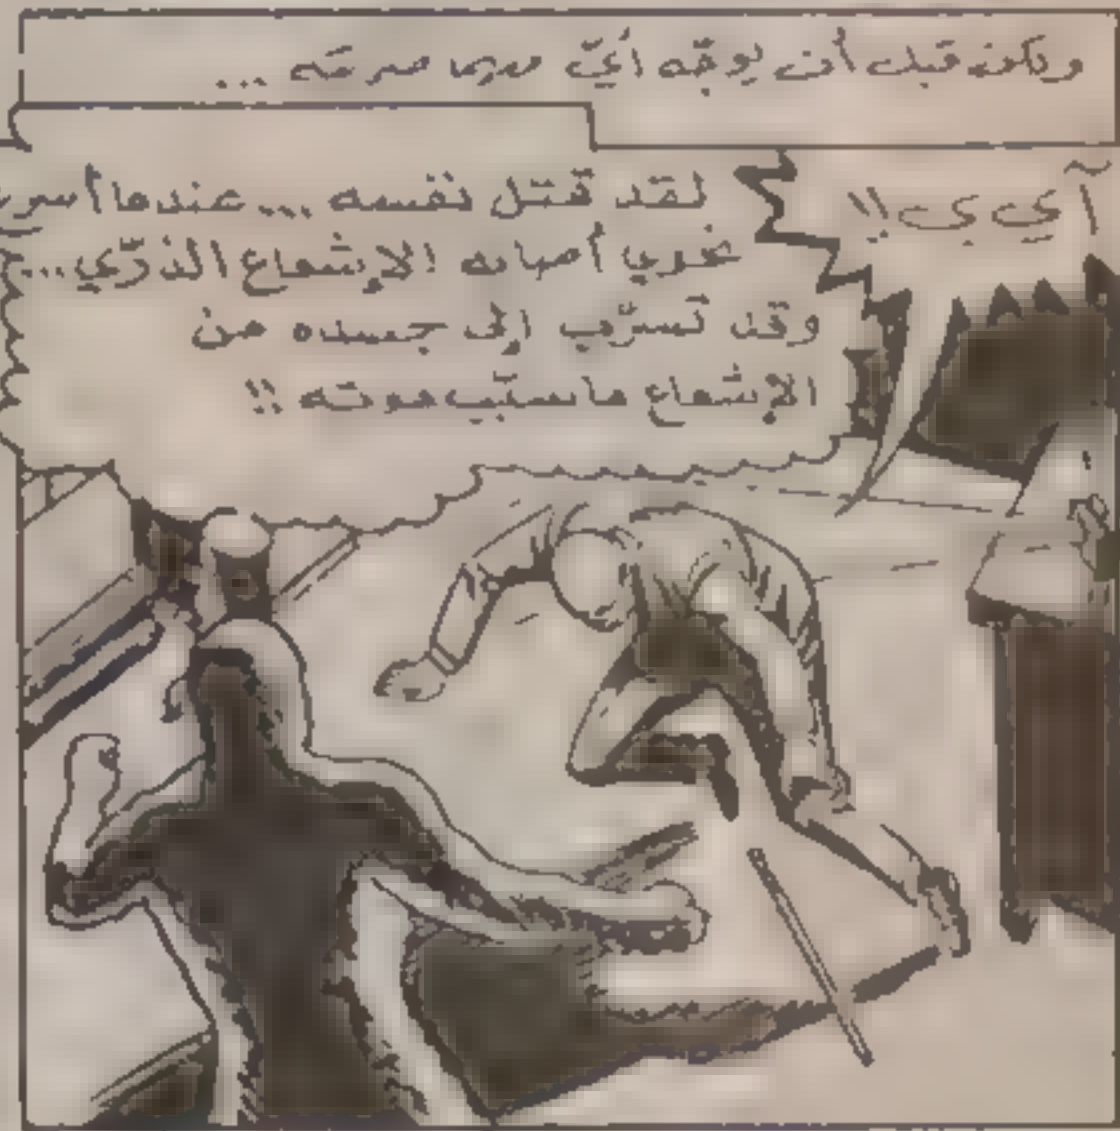 ولكن قبل أن يوجّه أيّ منهما ضربته ...
آي ي ي !!
لقد قتل نفسه ... عندما أسرع
نحوي أصابه الإشعاع الذرّي ...
وقد تسرّب إلى جسده من
الإشعاع ما سبّب موته !!